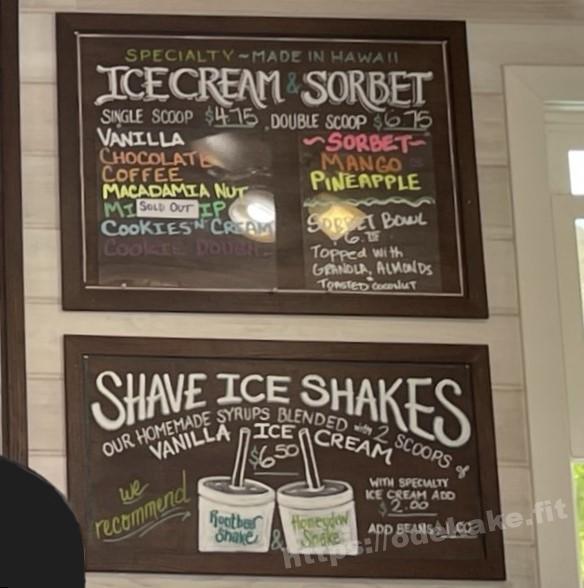 SPECIALTY ~ MADE IN HAWAII
ICE CREAM & SORBET
SINGLE SCOOP $4.75 DOUBLE SCOOP $6.75
VANILLA
CHOCOLATE
COFFEE
MACADAMIA NUT
MI SOLD OUT IP
COOKIES 'N CREAM
COOKIE DOUGH
~SORBET~
MANGO
PINEAPPLE
SORBET BOWL
Topped with
GRANOLA, ALMONDS
TOASTED COCONUT
SHAVE ICE SHAKES
OUR HOMEMADE SYRUPS BLENDED with 2 SCOOPS of
VANILLA ICE CREAM
$6.50
we
recommend
Rootbeer
Shake
&
Honeydew
Shake
WITH SPECIALTY
ICE CREAM ADD
$2.00
ADD BEANS
https://odekake.fit